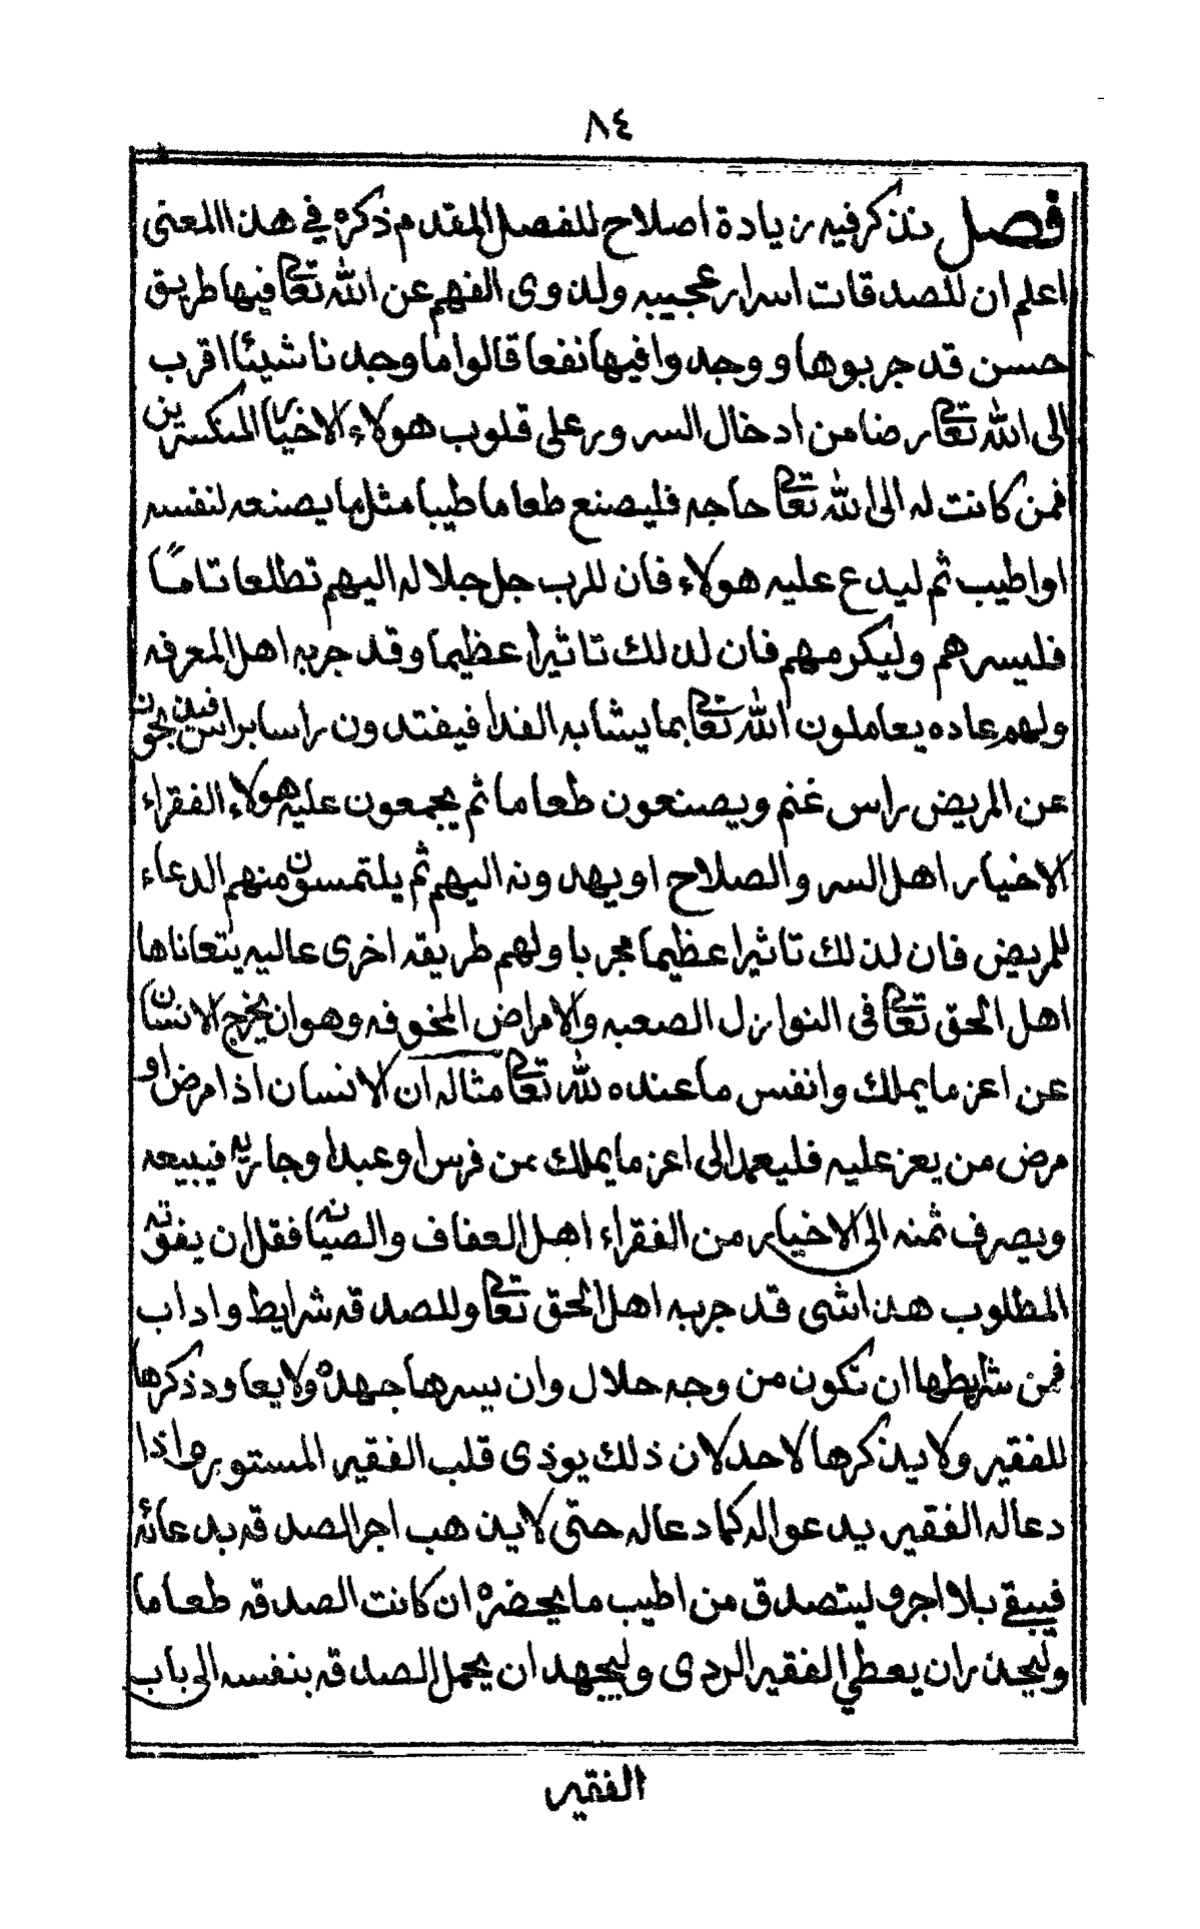 ٨٤
فصل نذكر فيه زيادة اصلاح للفصل المقدم ذكره في هذا المعنى
اعلم ان للصدقات اسرار عجيبه ولذوى الفهم عن الله تعالى فيها طريق
حسن قد جربوها ووجدوا فيها نفعا قالوا ما وجدنا شيئا اقرب
الى الله تعالى رضا من ادخال السرور على قلوب هولاء الاخيار المنكسرين
فمن كانت له الى الله تعالى حاجه فليصنع طعاما طيبا مثل ما يصنعه لنفسه
او اطيب ثم ليدع عليه هولاء فان للرب جل جلاله اليهم تطلعا تامًا
فليسرهم وليكرمهم فان لذلك تاثيرا عظيما وقد جربه اهل المعرفه
ولهم عاده يعاملون الله تعالى بما يشابه الفدا فيفتدون راسا براس فيذبحون
عن المريض راس غنم ويصنعون طعاما ثم يجمعون عليه هولاء الفقراء
الاخيار اهل السر والصلاح او يهدونه اليهم ثم يلتمسون منهم الدعاء
للمريض فان لذلك تاثيرا عظيما مجربا ولهم طريقه اخرى عاليه يتعاناها
اهل الحق تعالى في النوازل الصعبه والامراض المخوفه وهو ان يخرج الانسان
عن اعز ما يملك وانفس ما عنده لله تعالى مثاله ان الانسان اذا مرض او
مرض من يعز عليه فليعمد الى اعز ما يملك من فرس او عبد او جاريه فيبيعه
ويصرف ثمنه الى الاخيار من الفقراء اهل العفاف والصيانه فقل ان يفوته
المطلوب هذا شى قد جربه اهل الحق تعالى وللصدقه شرايط واداب
فمن شرايطها ان تكون من وجه حلال وان يسرها جهده ولا يعاود ذكرها
للفقير ولا يذكرها لاحد لان ذلك يوذى قلب الفقير المستور واذا
دعا له الفقير يدعو اله كما دعا له حتى لا يذهب اجر الصدقه بدعائه
فيبقى بلا اجر وليتصدق من اطيب ما يحضره ان كانت الصدقه طعاما
وليحذر ان يعطي الفقير الردى وليجهد ان يحمل الصدقه بنفسه الى باب
الفقير